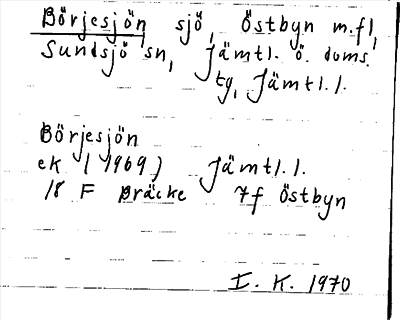 Börjesjön sjö, Östbyn m.fl,
Sundsjö sn, Jämtl. ö. doms.
tg, Jämtl.l.
Börjesjön
ek (1969) Jämtl.l.
18 F Bräcke 7f Östbyn
I. K. 1970